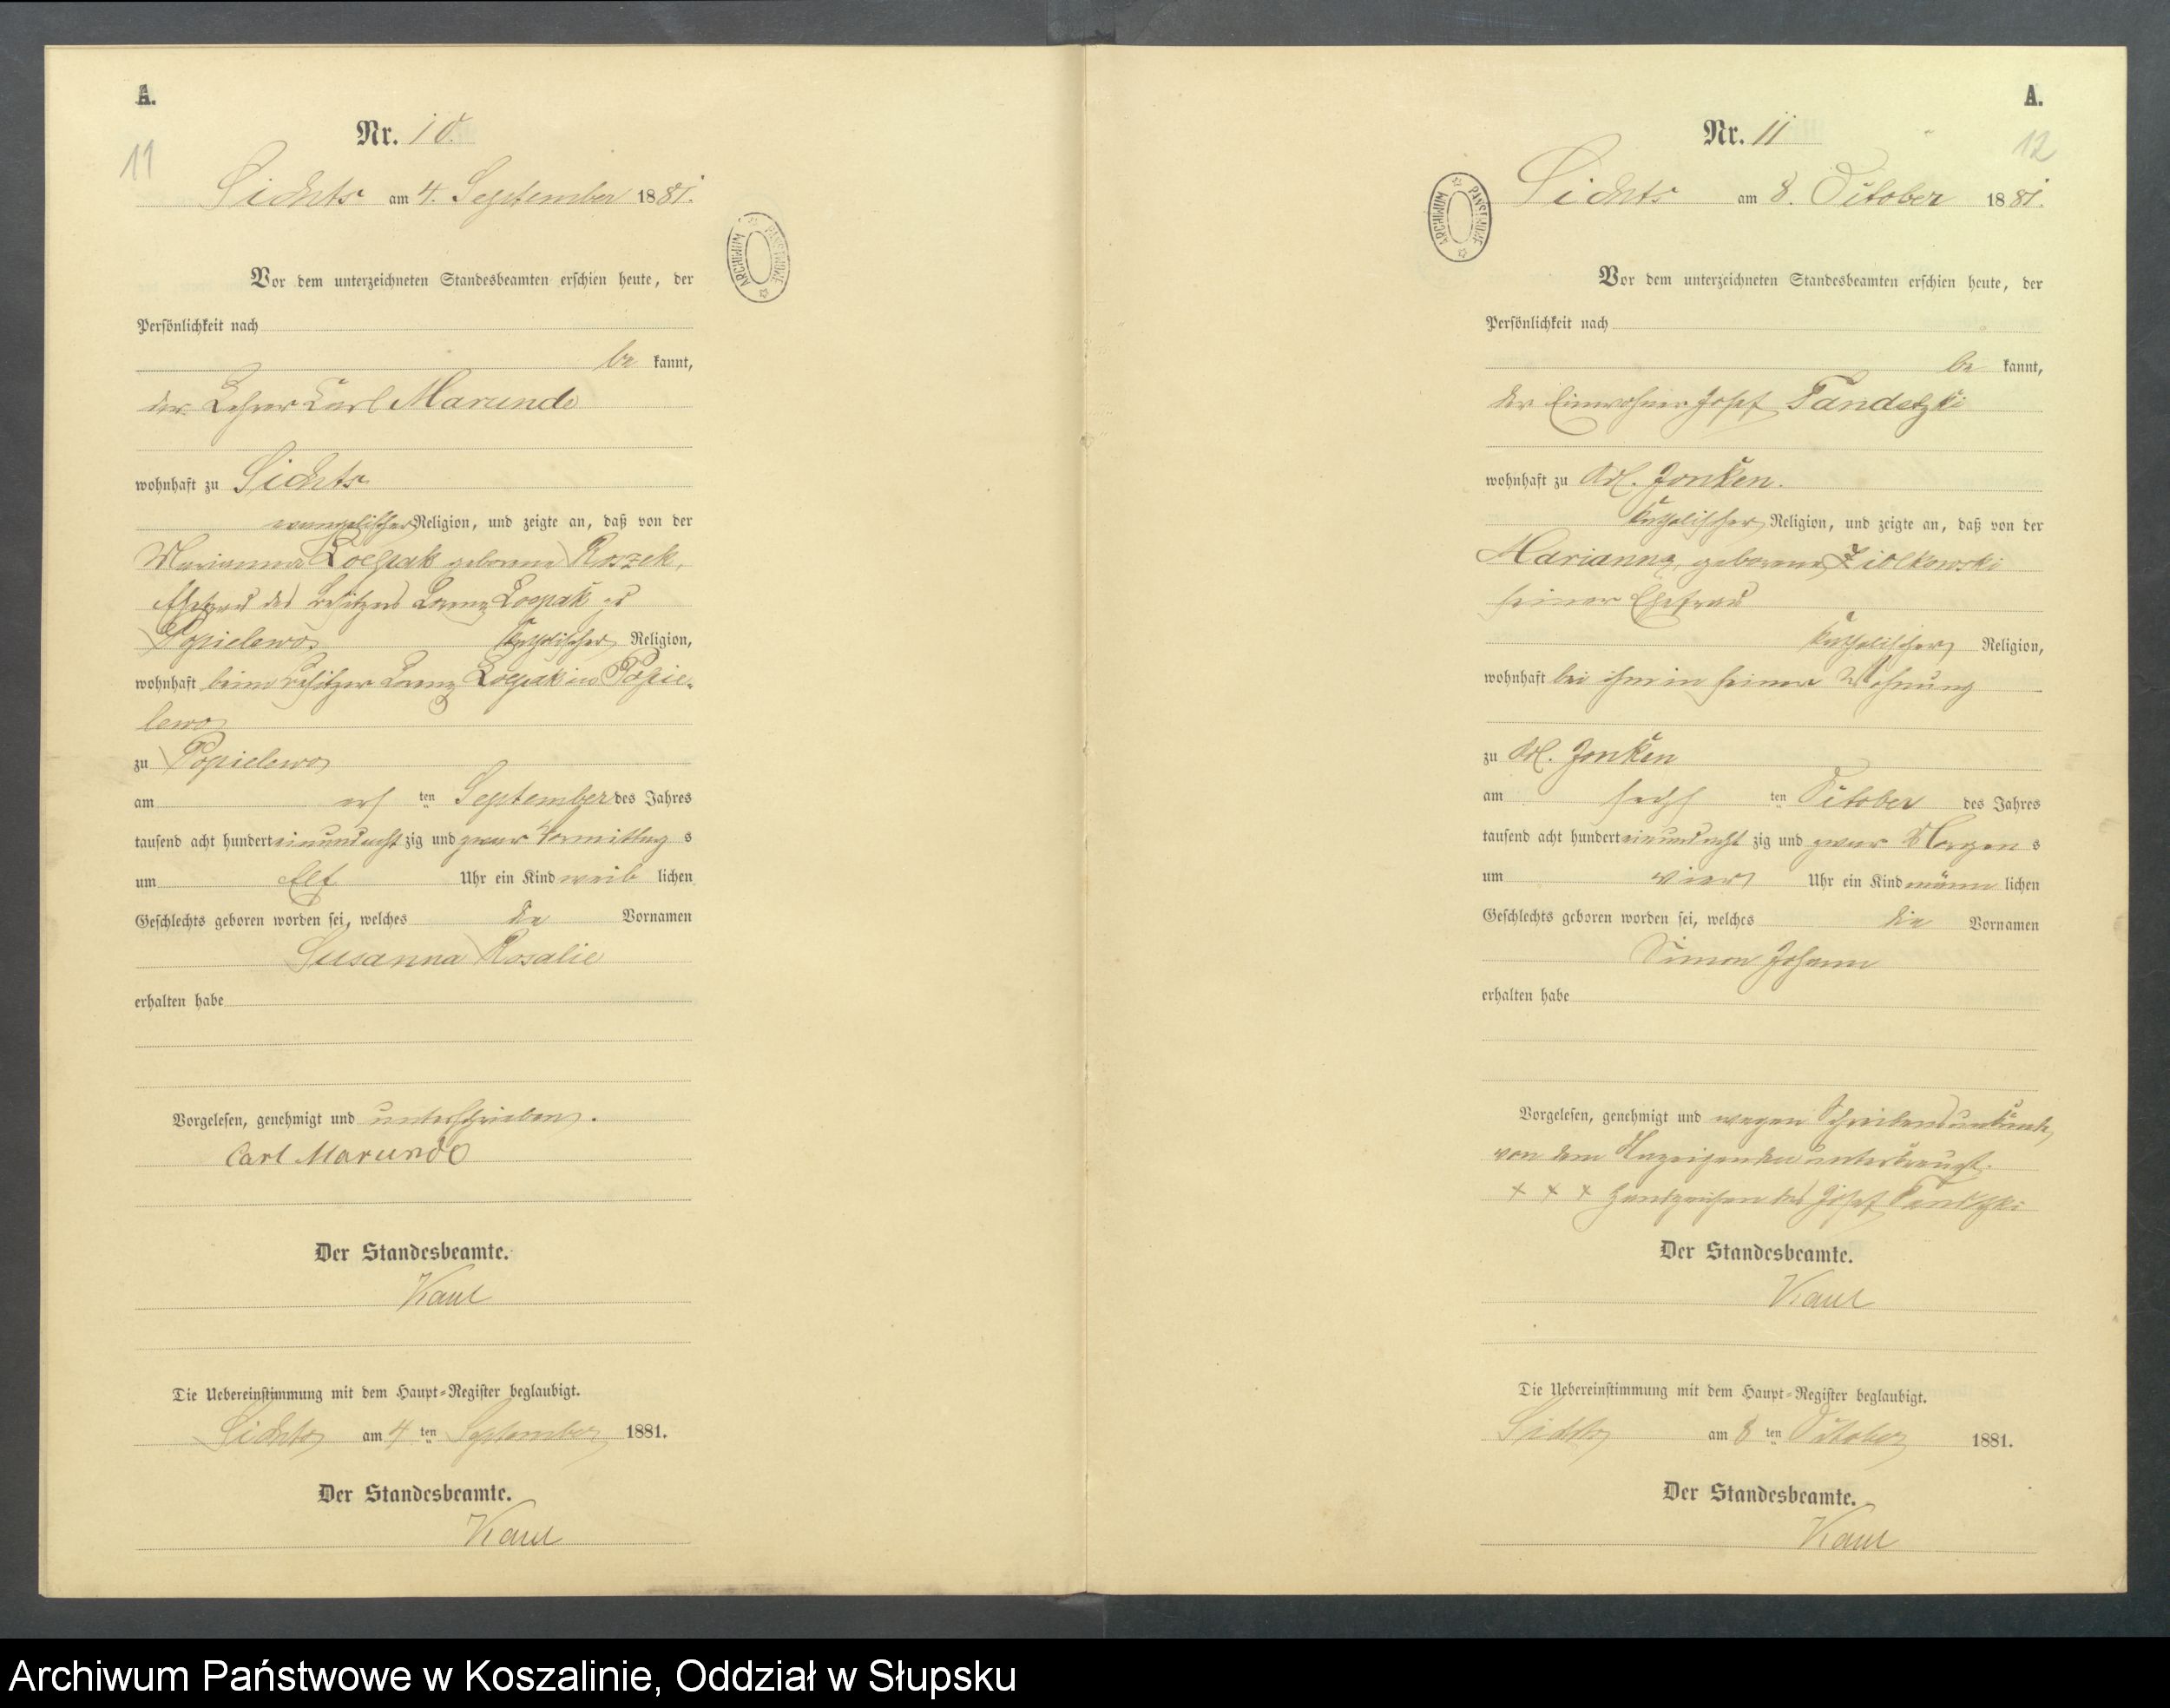 A.
11
Nr. 10.
Lichts am 4. September 1881.
ARCHIWUM PAŃSTWOWE
Vor dem unterzeichneten Standesbeamten erschien heute, der
Persönlichkeit nach
be kannt,
der Lehrer Carl Marunde
wohnhaft zu
evangelischer Religion, und zeigte an, daß von der
Marianna geborene Roszek,
Ehefrau des Besitzers Lorenz zu
Popielewo katholischer Religion,
wohnhaft beim Besitzer Lorenz in Popie-
lewo
zu Popielewo
am ers ten September des Jahres
tausend acht hundert einundacht zig und zwar Vormittag s
um Elf Uhr ein Kind weib lichen
Geschlechts geboren worden sei, welches die Vornamen
Susanna Rosalie
erhalten habe
Vorgelesen, genehmigt und unterschrieben.
Carl Marunde
Der Standesbeamte.
Kaul
Die Uebereinstimmung mit dem Haupt-Register beglaubigt.
am 4 ten September 1881.
Der Standesbeamte.
Kaul
A.
12
Nr. 11
am 8. October 1881.
ARCHIWUM PAŃSTWOWE
Vor dem unterzeichneten Standesbeamten erschien heute, der
Persönlichkeit nach
be kannt,
der Einwohner Josef Tandetzki
wohnhaft zu Adl. Jonken.
katholischer Religion, und zeigte an, daß von der
Marianna, geborene Ziolkowski
seiner Ehefrau
katholischer Religion,
wohnhaft bei ihm in seiner Wohnung
zu Adl. Jonken
am sechs ten October des Jahres
tausend acht hundert einundacht zig und zwar Morgen s
um vier Uhr ein Kind männ lichen
Geschlechts geboren worden sei, welches die Vornamen
Simon Johann
erhalten habe
Vorgelesen, genehmigt und wegen Schreibensunkunde,
von dem Anzeigenden unterkreuzt.
+ + + Handzeichen des Josef Tandetzki
Der Standesbeamte.
Kaul
Die Uebereinstimmung mit dem Haupt-Register beglaubigt.
am 8 ten October 1881.
Der Standesbeamte.
Kaul
Archiwum Państwowe w Koszalinie, Oddział w Słupsku